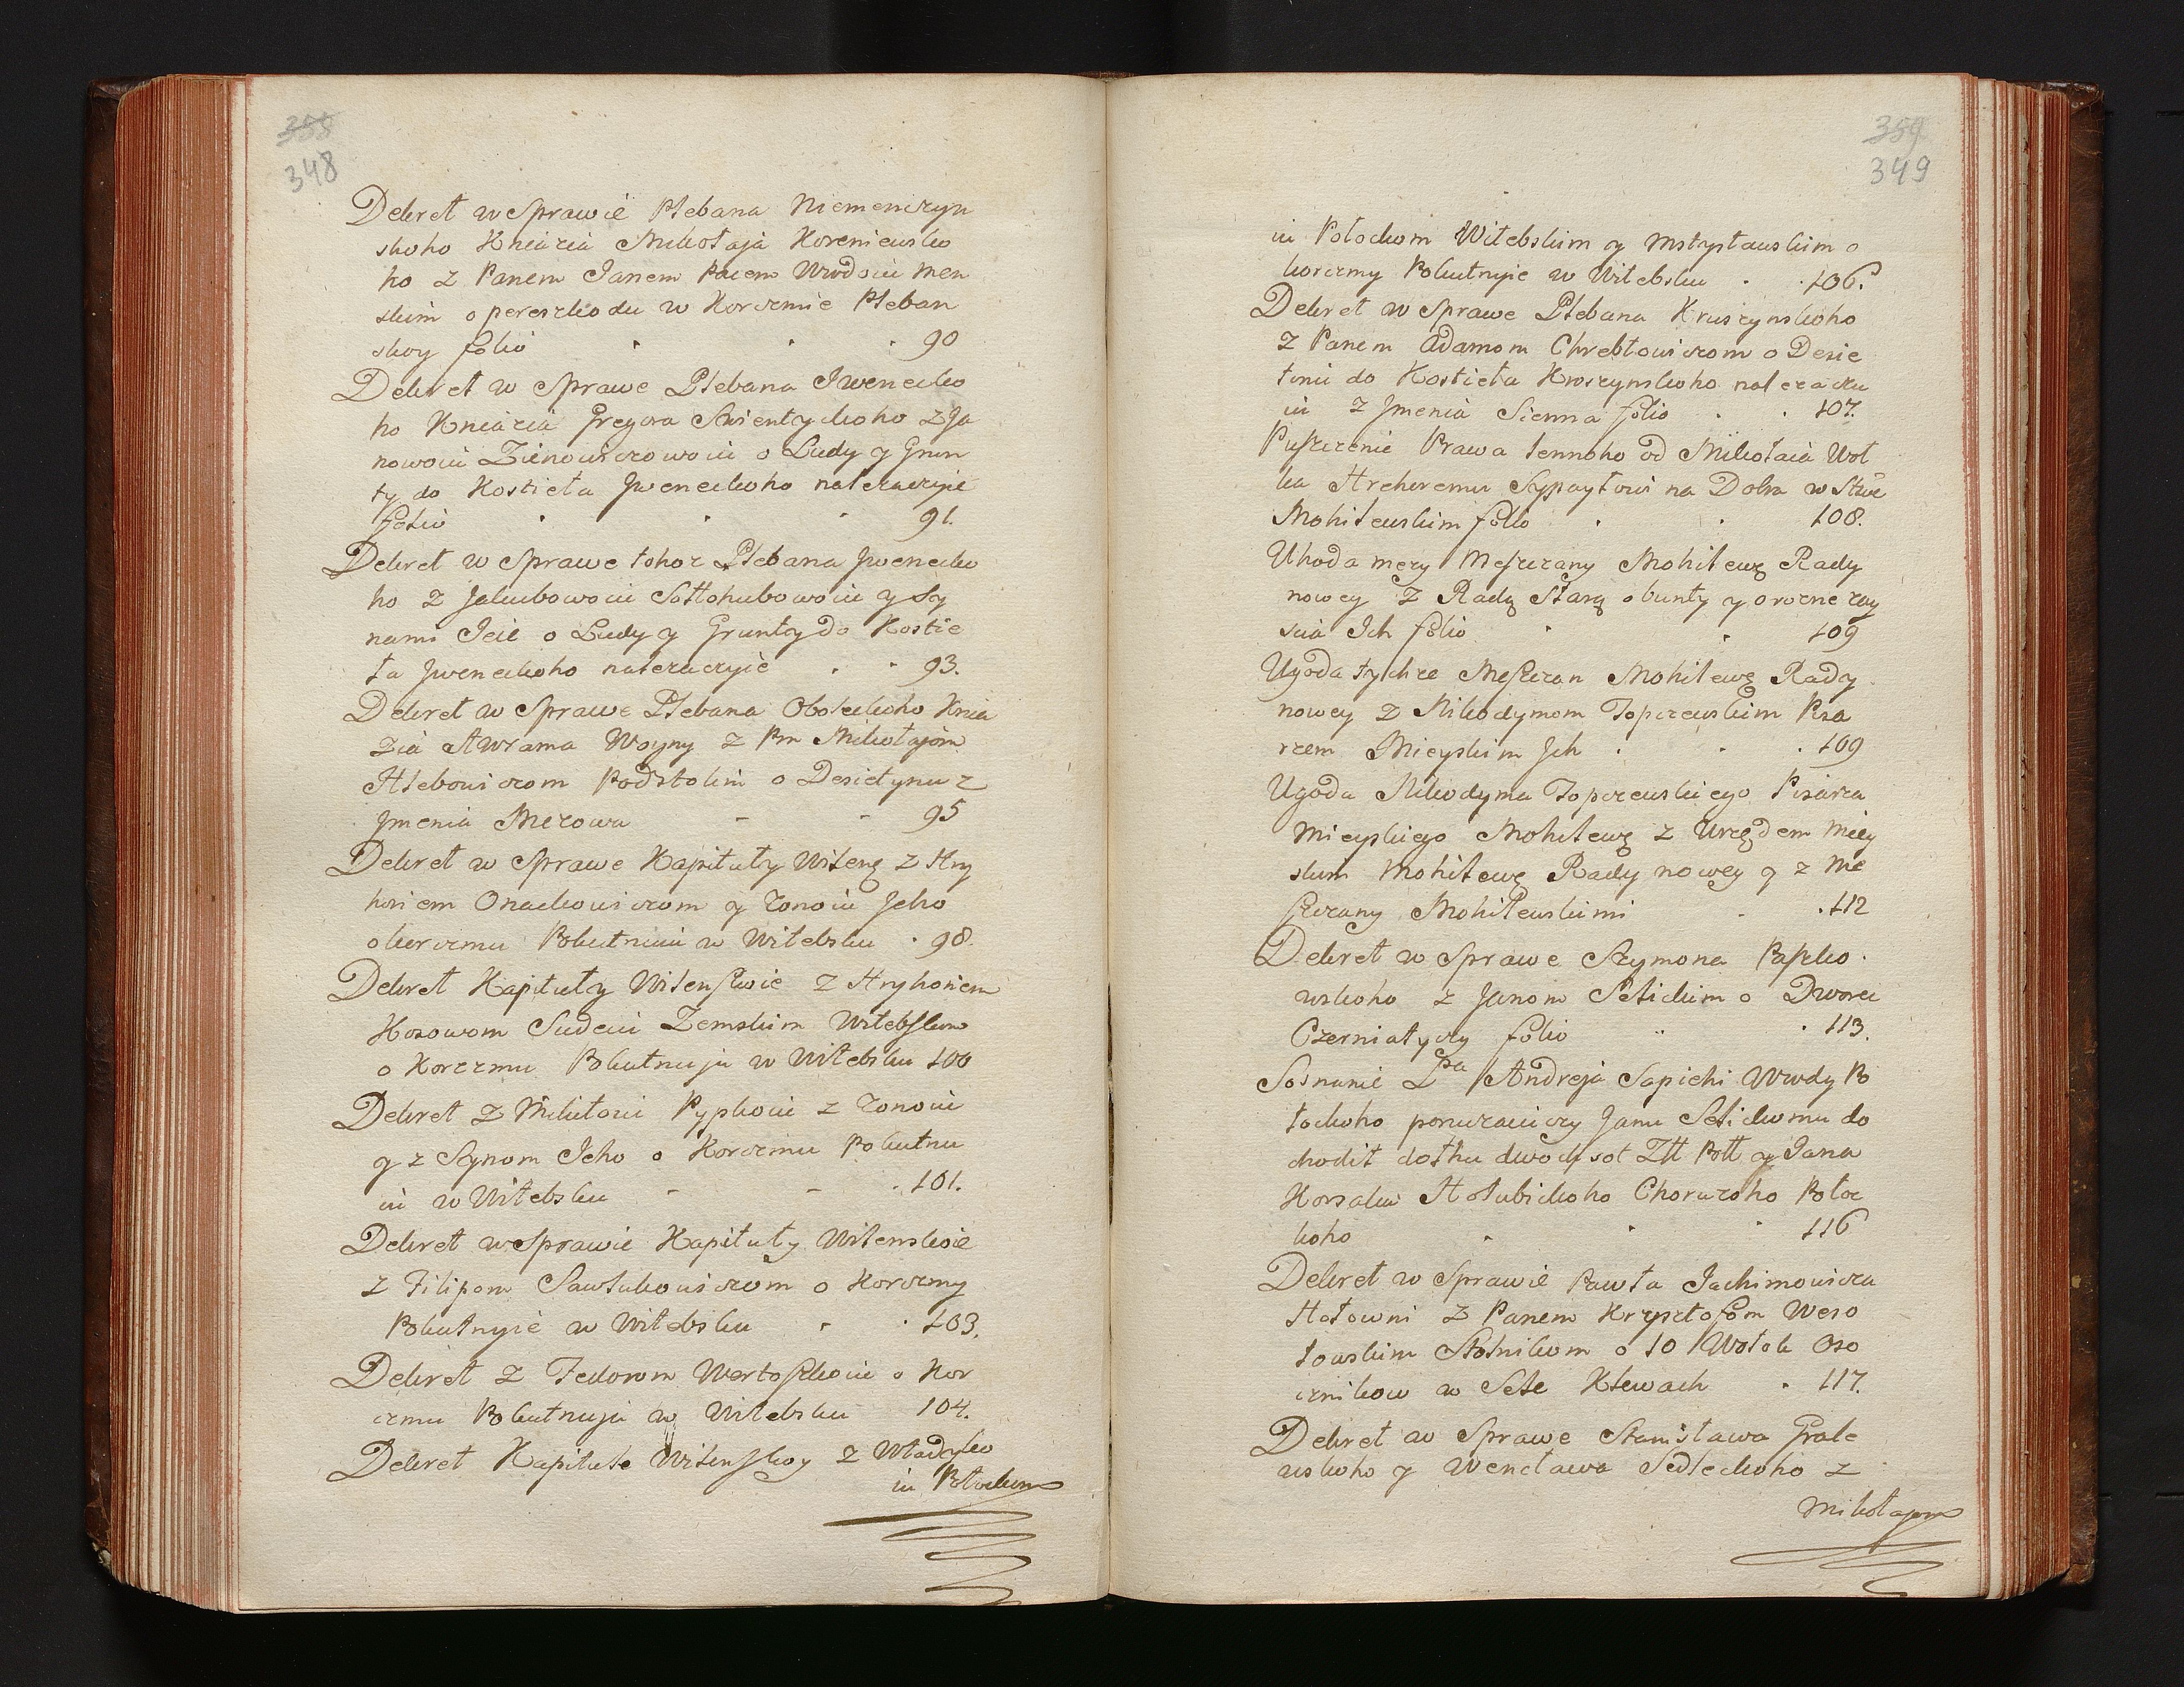 358
348
Dekret w Sprawie Plebana Niemenczyn
skoho Kniazia Mikołaja Koreniewsko
ho z Panem Janem Pacem Wwodoiu Men
skim o pereszkodu w Korczmie Pleban
skoy folio 90
Dekret w Sprawe Plebana Iwenecko
ho Kniazia Gregora Swientyckoho z Ja
nowoiu Zienowiczowoiu o Ludy y Grun
ty do Kostieła Jweneckoho należaczyie
folio 91.
Dekret w Sprawe tohoz Plebana Jwenecko
ho z Jakubowoiu Sołłohubowoiu y Sy
nami Jeie o Ludy y Grunty do Kostie
ła Jweneckoho należaczyie 93.
Dekret w Sprawe Plebana Oboleckoho Knia
zia Awrama Woyny z Pm Mikołajom
Hlebowiczom Podstolim o Desietynu z
Jmenia Merowa 95
Dekret w Sprawe Kapituły Wileng z Hry
horiem Onackowiczom y Żonoiu Jeho
o korczmu Pokutnuiu w Witebsku 98.
Dekret Kapituły Wilenskoie z Hryhoriem
Hosowom Sudeiu Zemskim Witebskim
o Korczmu Pokutnuju w Witebsku 100
Dekret z Mikitoiu Pypkoiu z Żonoiu
y z Synom Jeho o Korczmu Pokutnu
iu w Witebsku 101.
Dekret w Sprawie Kapituły Wilenskoie
z Filipom Sawlukowiczom o Korczmy
Pokutnyie w Witebsku 103.
Dekret z Fedorom Wertoszkoiu o Kor
czmu Pokutnuju w Witebsku 104.
Dekret Kapitule Wilenskoy z Władyko
iu Połockom
359
349
iu Połockom Witebskim y Mstysławskim o
korczmy Pokutnyie w Witebsku 106.
Dekret w Sprawe Plebana Kruszynskoho
z Panem Adamom Chrebtowiczom o Desie
tinu do Kostieła Kroszynskoho należaczu
iu z Jmenia Sienna folio 107.
Puszczenie Prawa lennoho od Mikołaia Woł
ka Hrehoremu Sypayłowi na Dobra w Stwe
Mohilewskim folio 108.
Uhoda mezy Meszczany Mohilewg Rady
nowey z Radą Starą o bunty y oroczne zay
scia Ich folio 109
Ugoda tychze Meszczan Mohilewg Rady
nowey z Nikodymom Topczewskim Pisa
rzem Mieyskim Jch 109
Ugoda Nikodyma Topczewskiego Pisarza
Mieyskiego Mohilewg z Urzędem Miey
skim Mohilewg Rady nowey y z Me
szczany Mohilewskimi 112
Dekret w Sprawe Szymona Paszko
wskoho z Janom Selickim o Dworec
Czerniatyczy folio 113.
Soznanie Lpa Andreja Sapiehi Wwody Po
łockoho poruczaiuczy Janu Selickomu do
chodit dołhu dwoch sot Złł Poll y Jana
Korsaka Hołubickoho Choruzoho Połoc
koho 116
Dekret w Sprawie Pawła Jachimowicza
Hołowni z Panem Krzysztofom Weso
łowskim Stolnikom o 10 Wołok Oso
cznikow w Sele Klewach 117.
Dekret w Sprawe Stanisława Grale
wskoho y Wencława Sedleckoho z
Mikołajom